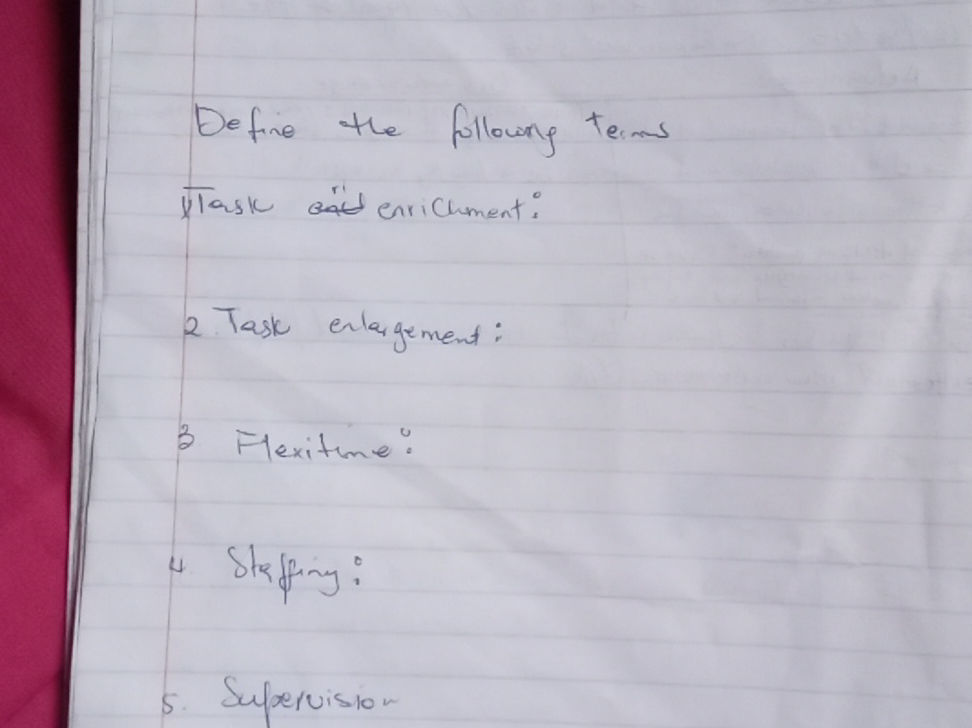 Define the following terms
1) Task enrichment:
2. Task enlargement:
3 Flexitime:
4. Staffing:
5. Supervision